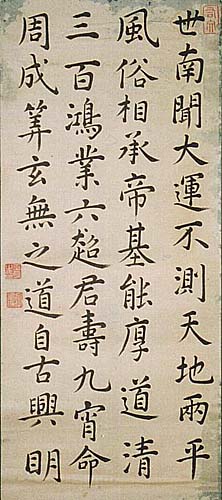 世南聞大運不測天地兩平
風俗相承帝基能厚道清
三百鴻業六超君壽九霄命
周成筭玄無之道自古興明